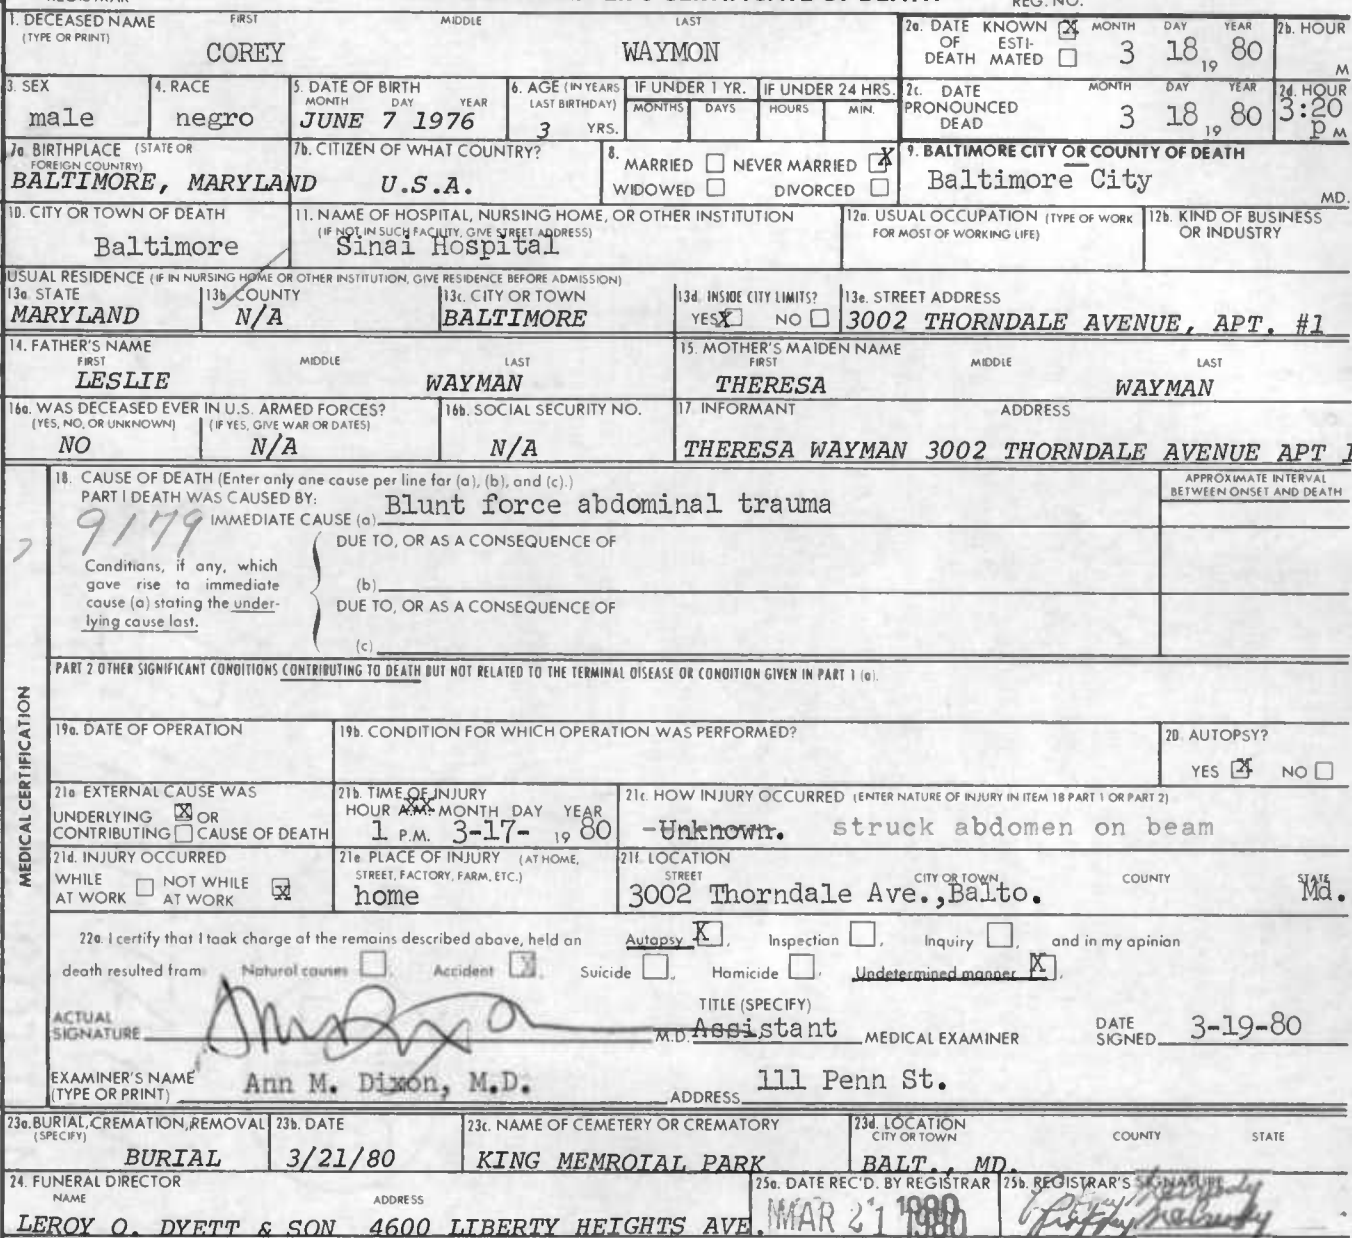 REG. NO.
1. DECEASED NAME FIRST MIDDLE LAST
(TYPE OR PRINT)
COREY WAYMON
2a. DATE KNOWN X MONTH DAY YEAR
OF ESTI-
DEATH MATED
3 18, 19 80
2b. HOUR
M
3. SEX
male
4. RACE
negro
5. DATE OF BIRTH
MONTH DAY YEAR
JUNE 7 1976
6. AGE (IN YEARS
LAST BIRTHDAY)
3 YRS.
IF UNDER 1 YR.
MONTHS DAYS
IF UNDER 24 HRS.
HOURS MIN.
2c. DATE MONTH DAY YEAR
PRONOUNCED
DEAD
3 18, 19 80
2d. HOUR
3:20
p M
7a BIRTHPLACE (STATE OR
FOREIGN COUNTRY)
BALTIMORE, MARYLAND
7b. CITIZEN OF WHAT COUNTRY?
U.S.A.
8.
MARRIED NEVER MARRIED X
WIDOWED DIVORCED
9. BALTIMORE CITY OR COUNTY OF DEATH
Baltimore City
MD.
10. CITY OR TOWN OF DEATH
Baltimore
11. NAME OF HOSPITAL, NURSING HOME, OR OTHER INSTITUTION
(IF NOT IN SUCH FACILITY, GIVE STREET ADDRESS)
Sinai Hospital
12a. USUAL OCCUPATION (TYPE OF WORK
FOR MOST OF WORKING LIFE)
12b. KIND OF BUSINESS
OR INDUSTRY
USUAL RESIDENCE (IF IN NURSING HOME OR OTHER INSTITUTION, GIVE RESIDENCE BEFORE ADMISSION)
13a. STATE
MARYLAND
13b. COUNTY
N/A
13c. CITY OR TOWN
BALTIMORE
13d. INSIDE CITY LIMITS?
YES X NO
13e. STREET ADDRESS
3002 THORNDALE AVENUE, APT. #1
14. FATHER'S NAME
FIRST MIDDLE LAST
LESLIE WAYMAN
15. MOTHER'S MAIDEN NAME
FIRST MIDDLE LAST
THERESA WAYMAN
16a. WAS DECEASED EVER IN U.S. ARMED FORCES?
(YES, NO, OR UNKNOWN) (IF YES, GIVE WAR OR DATES)
NO N/A
16b. SOCIAL SECURITY NO.
N/A
17 INFORMANT ADDRESS
THERESA WAYMAN 3002 THORNDALE AVENUE APT 1
18. CAUSE OF DEATH (Enter only one cause per line for (a), (b), and (c).)
PART I DEATH WAS CAUSED BY:
9179
IMMEDIATE CAUSE (a) Blunt force abdominal trauma
APPROXIMATE INTERVAL
BETWEEN ONSET AND DEATH
DUE TO, OR AS A CONSEQUENCE OF
Conditions, if any, which
gave rise to immediate
cause (a) stating the under-
lying cause last.
(b)
DUE TO, OR AS A CONSEQUENCE OF
(c)
PART 2 OTHER SIGNIFICANT CONDITIONS CONTRIBUTING TO DEATH BUT NOT RELATED TO THE TERMINAL DISEASE OR CONDITION GIVEN IN PART 1 (a).
MEDICAL CERTIFICATION
19a. DATE OF OPERATION
19b. CONDITION FOR WHICH OPERATION WAS PERFORMED?
20 AUTOPSY?
YES X NO
21a EXTERNAL CAUSE WAS
UNDERLYING X OR
CONTRIBUTING CAUSE OF DEATH
21b. TIME OF INJURY
HOUR A.M. MONTH DAY YEAR
1 P.M. 3-17- 19 80
21c. HOW INJURY OCCURRED (ENTER NATURE OF INJURY IN ITEM 18 PART 1 OR PART 2)
-Unknown. struck abdomen on beam
21d. INJURY OCCURRED
WHILE NOT WHILE
AT WORK AT WORK X
21e PLACE OF INJURY (AT HOME,
STREET, FACTORY, FARM, ETC.)
home
21f LOCATION
STREET CITY OR TOWN COUNTY STATE
3002 Thorndale Ave.,Balto. Md.
22a. I certify that I took charge of the remains described above, held an Autopsy X, Inspection , Inquiry , and in my opinion
death resulted from Natural causes , Accident X, Suicide , Homicide , Undetermined manner X,
ACTUAL
SIGNATURE M.D.
TITLE (SPECIFY)
Assistant MEDICAL EXAMINER
DATE
SIGNED 3-19-80
EXAMINER'S NAME
(TYPE OR PRINT) Ann M. Dixon, M.D.
ADDRESS 111 Penn St.
23a. BURIAL, CREMATION, REMOVAL
(SPECIFY)
BURIAL
23b. DATE
3/21/80
23c. NAME OF CEMETERY OR CREMATORY
KING MEMROIAL PARK
23d. LOCATION
CITY OR TOWN COUNTY STATE
BALT., MD.
24. FUNERAL DIRECTOR
NAME ADDRESS
LEROY O. DYETT & SON 4600 LIBERTY HEIGHTS AVE.
25a. DATE REC'D. BY REGISTRAR
MAR 21 1980
25b. REGISTRAR'S SIGNATURE